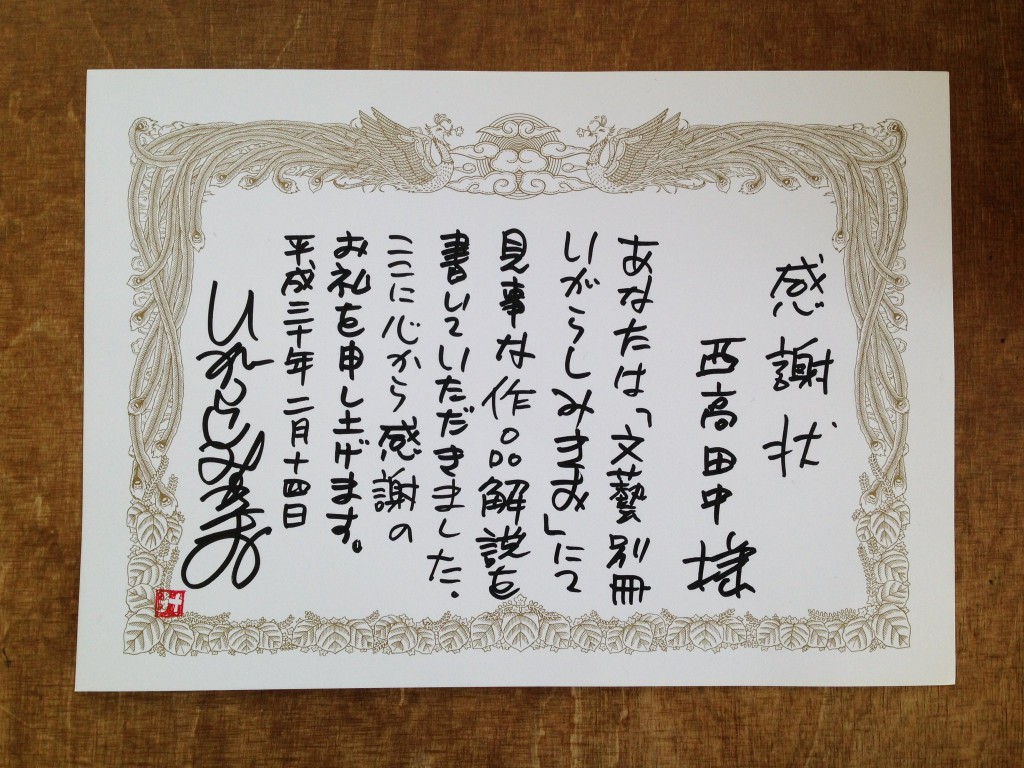 感謝状
西高田中様
あなたは「文藝別冊
いがらしみきお」にて
見事な作品解説を
書いていただきました.
ここに心から感謝の
お礼を申し土げます。
平成三十年二月十四日
いがらしみきお